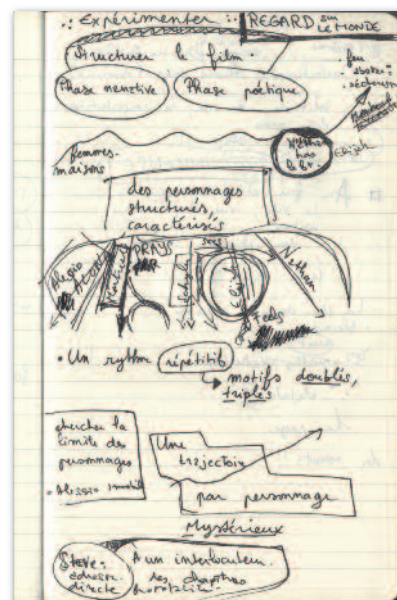 Expérimenter
REGARD sur
LE MONDE
Structurer le film.
Phase narrative
Phase poétique
feu
sécheresse
femmes-
maisons
Nathan
Elijah
des personnages
structurés,
caractérisés
Alessio
DRAYS
Elijah
Nathan
Feds
• Un rythme répétitif
motifs doublés,
triplés
chercher la
limite des
personnages
• Alessio
Une
trajectoire
par personnage
Mystérieux
Steve:
adresse
directe
A un interlocuteur.
des chapitres